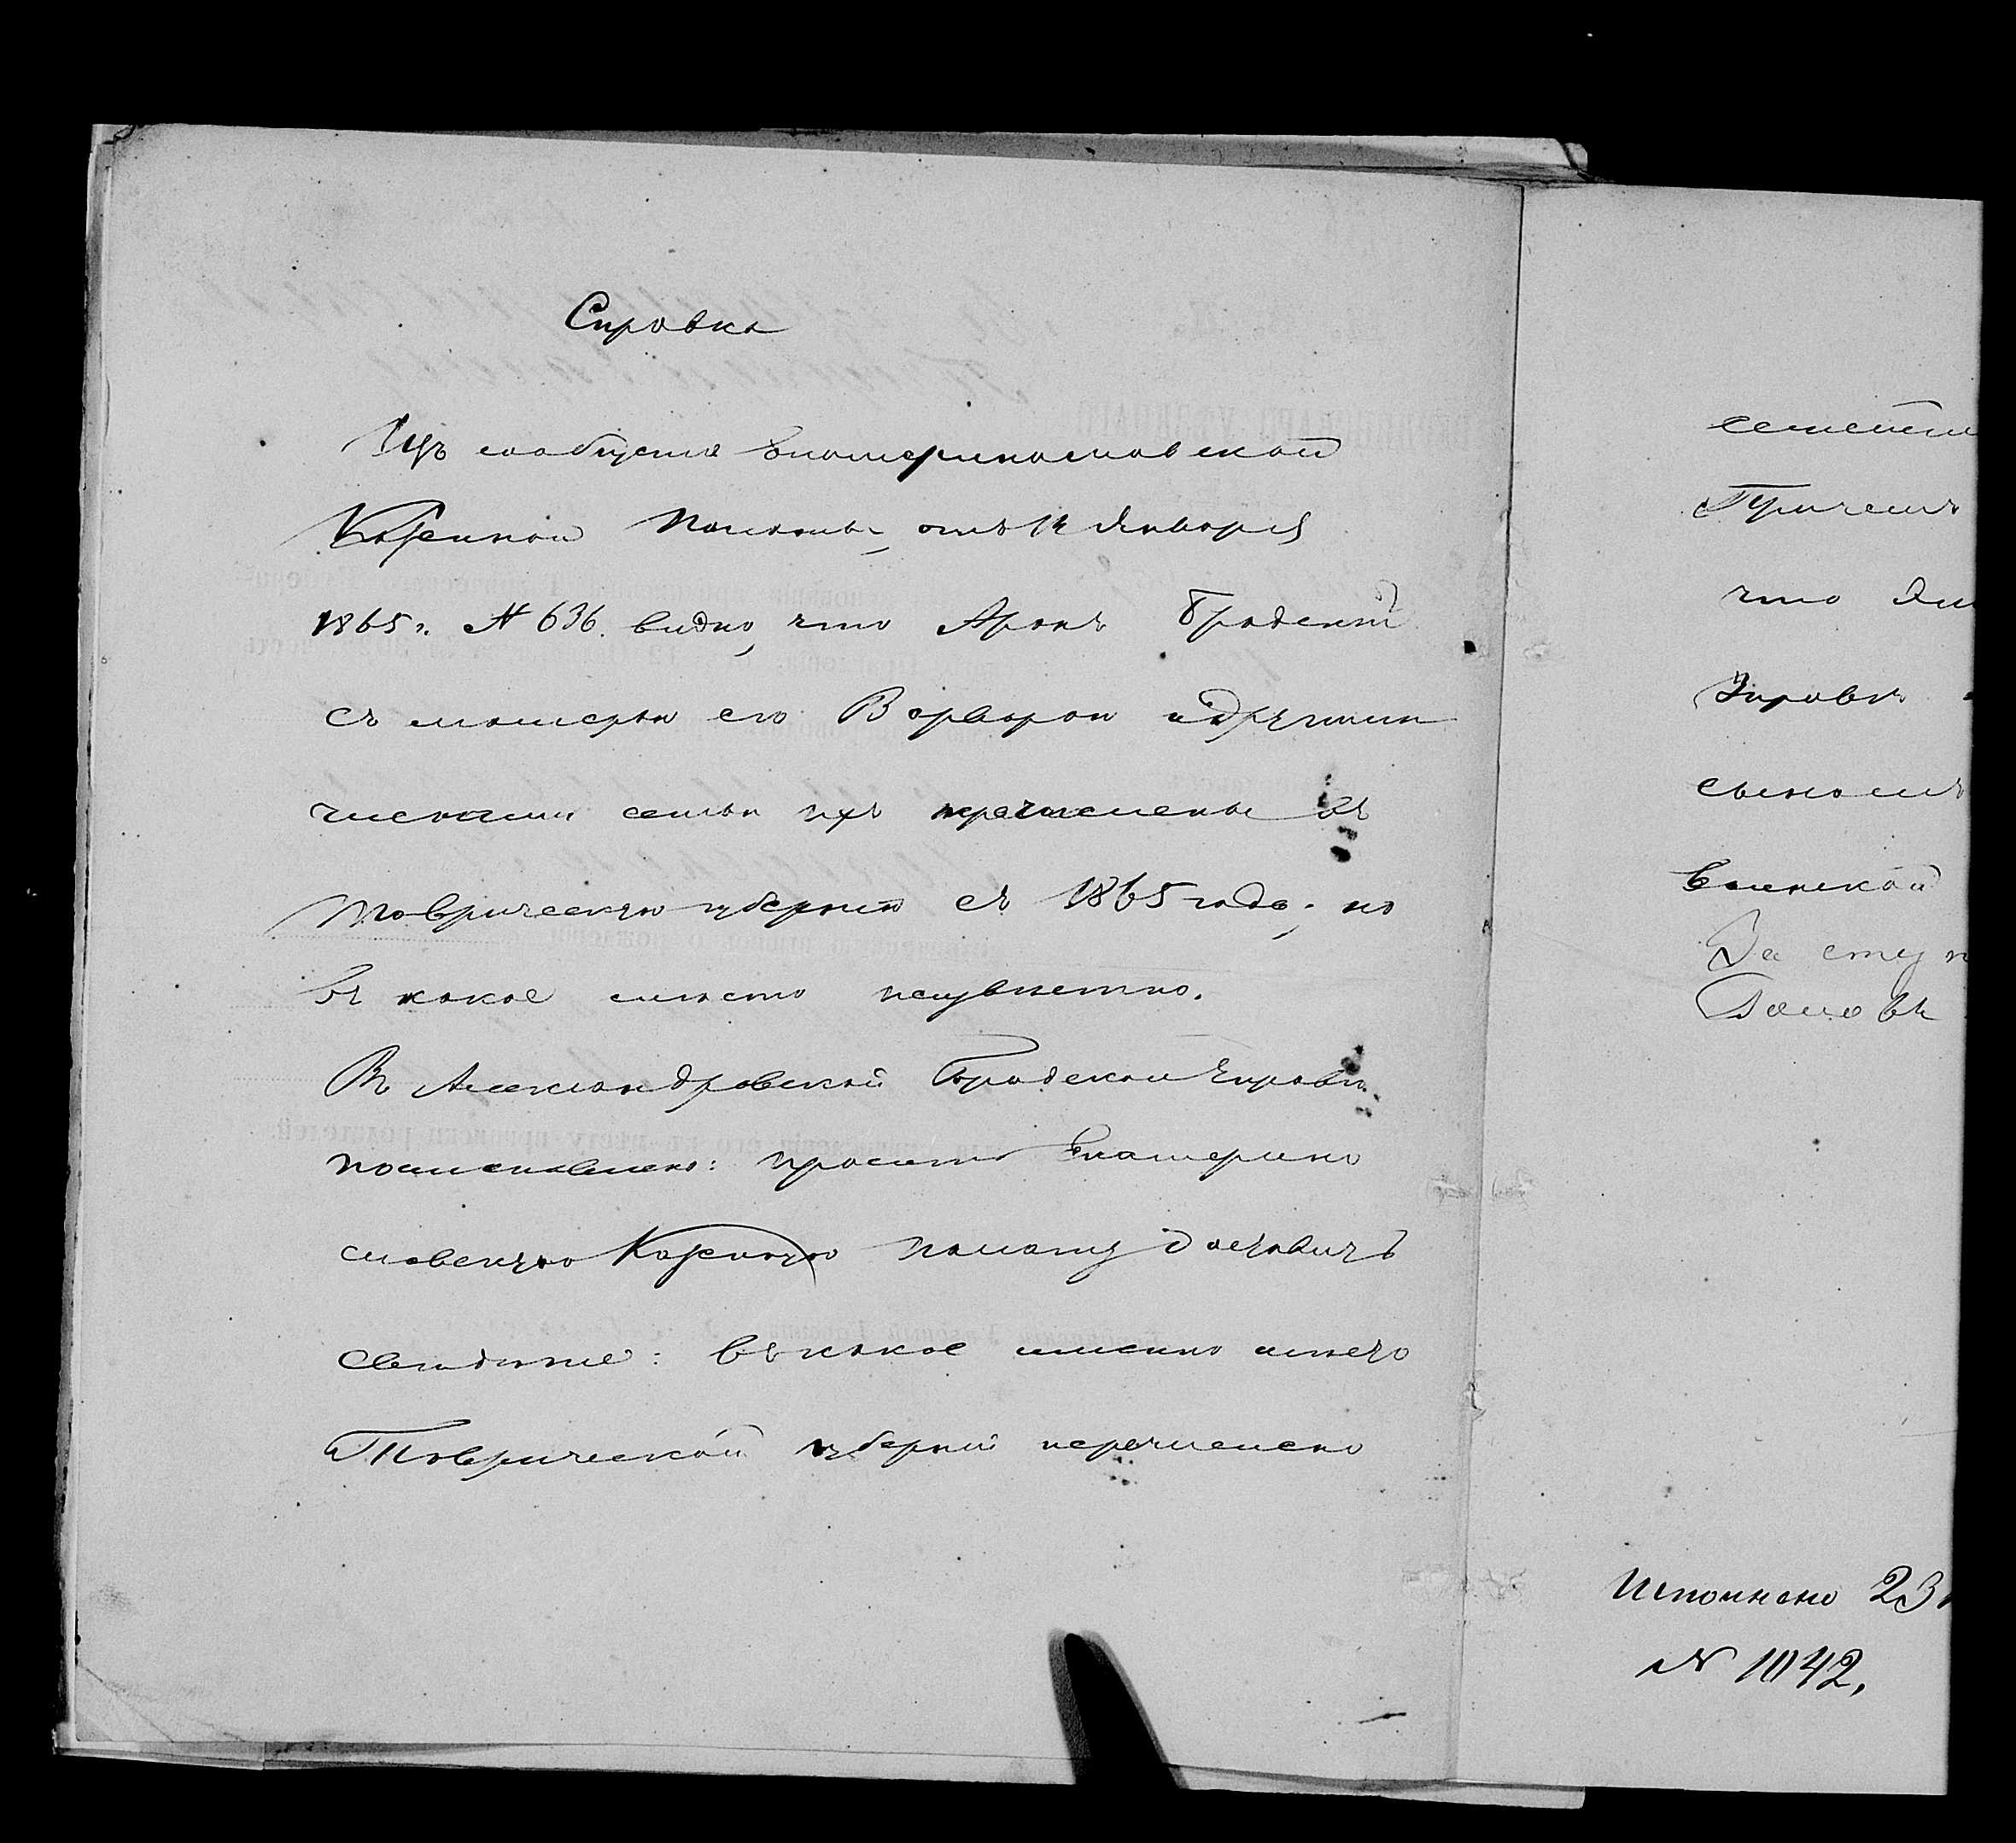 Справка
Изъ сообщенія Екатеринославской
Казенной Палаты, отъ 14 Января
1865 г. № 636. видно, что Аронъ Бродскій
съ матерью его Варварою и другими
числами семьи ихъ перечислены въ
Таврическую губернію съ 1865 года, но
въ какое мѣсто неизвѣстно.
Въ Александровской Городской Управѣ
постановлено: просить Екатерино
славскую Казенную палату доставить
свѣдѣніе: въ какое именно мѣсто
Таврической губерніи перечислено
семейст
Причемъ
что
Управѣ
сыномъ
воинской
Заступ
Головы
Исполнено 23
№ 1042.